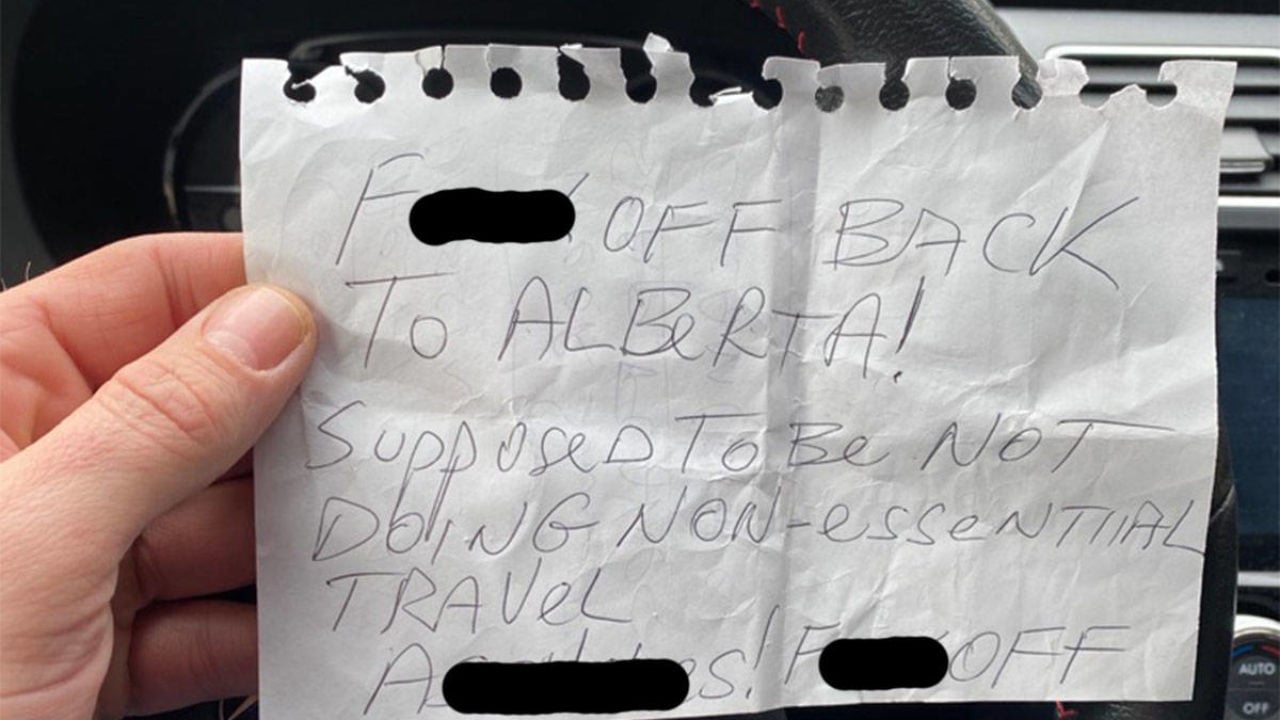 F OFF BACK
TO ALBeRTA!
SupposeD To Be NOT
DOING NON-esseNTIAL
TRAVeL
A es! F OFF
AUTO
OFF